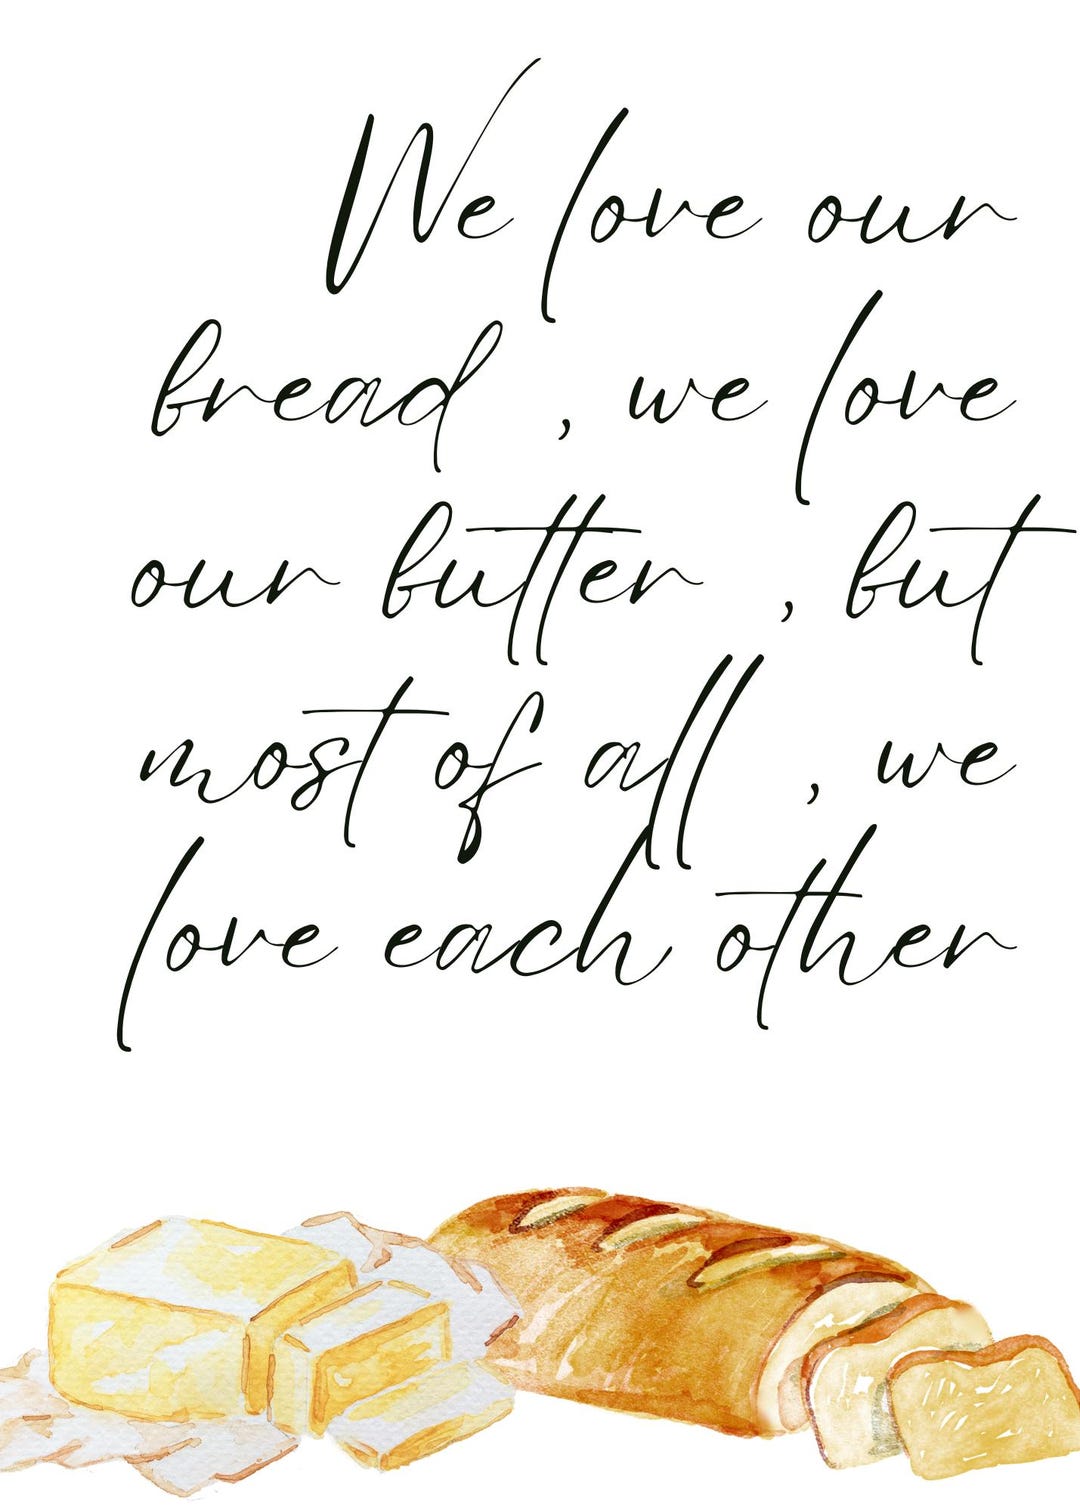 We love our
bread , we love
our butter , but
most of all , we
love each other